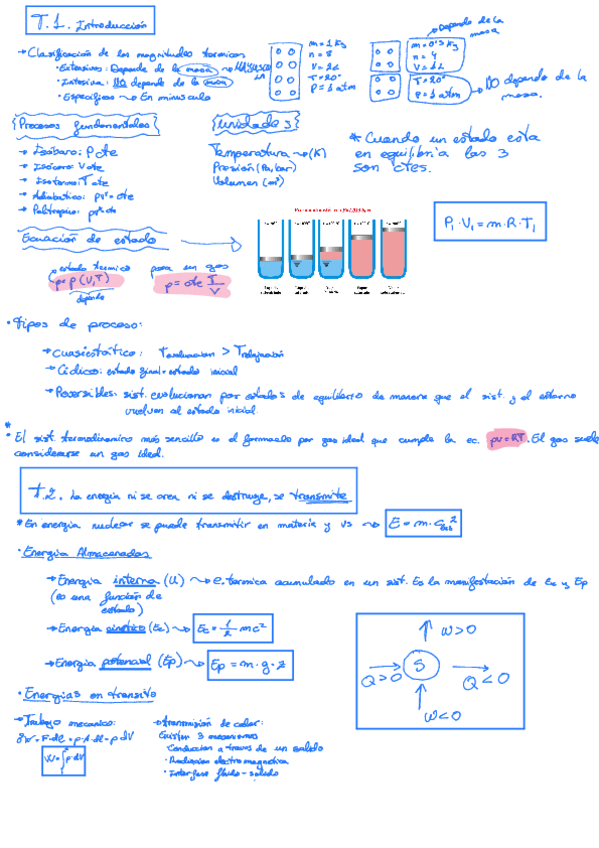 T.1. Introducción
→ Clasificación de las magnitudes termicas
· Extensivas: Depende de la masa → MAYUSCULA
· Intensiva: NO depende de la masa
· Especificas → En minuscula
m = 1 Kg
n = 8
V = 2L
T = 20°
P = 1 atm
m = 0'5 Kg
n = 4
V = 1L
T = 20°
P = 1 atm
Depende de la masa
NO depende de la masa.
Procesos fundamentales
→ Isobaro: P cte
→ Isocoro: V cte
→ Isotermo: T cte
→ Adiabatico: pvᵞ = cte
→ Politropico: pvⁿ cte
unidades
Temperatura → (K)
Presión (Pa, bar)
Volumen (m³)
* Cuando un estado esta
en equilibrio las 3
son ctes.
P₁ · V₁ = m · R · T₁
Ecuación de estado
estado termico
p = p (V,T)
depende
para un gas
p = cte T/V
· Tipos de proceso:
→ Cuasiestático: Tevaluacion > Trelajación
→ Cíclico: estado final = estado inicial
→ Reversibles: sist. evolucionan por estados de equilibrio de manera que el sist. y el entorno
vuelvan al estado inicial
*
· El sist. termodinamico más sencillo es el formado por gas ideal que cumple la ec. pv = RT. El gas suele
considerarse un gas ideal.
T.2. La energia ni se crea ni se destruye, se transmite
* En energia nuclear se puede transmitir en materia y vs → E = m · c²
· Energia Almacenada
→ Energia interna (U) → e. termica acumulada en un sist. Es la manifestación de Ec y Ep
(es una función de
estado)
→ Energia cinetica (Ec) → Ec = 1/2 mc²
→ Energia potencial (Ep) → Ep = m · g · z
W>0
Q>0
S
Q<0
W<0
· Energias en transito
→ Trabajo mecanico:
δW = F · dl = p · A · dl = p dV
W = ∫ p · dV
→ transmisión de calor:
Existen 3 mecanismos
· Conduccion a traves de un solido
· Radiacion electromagnetica
· Interfase fluido - solido